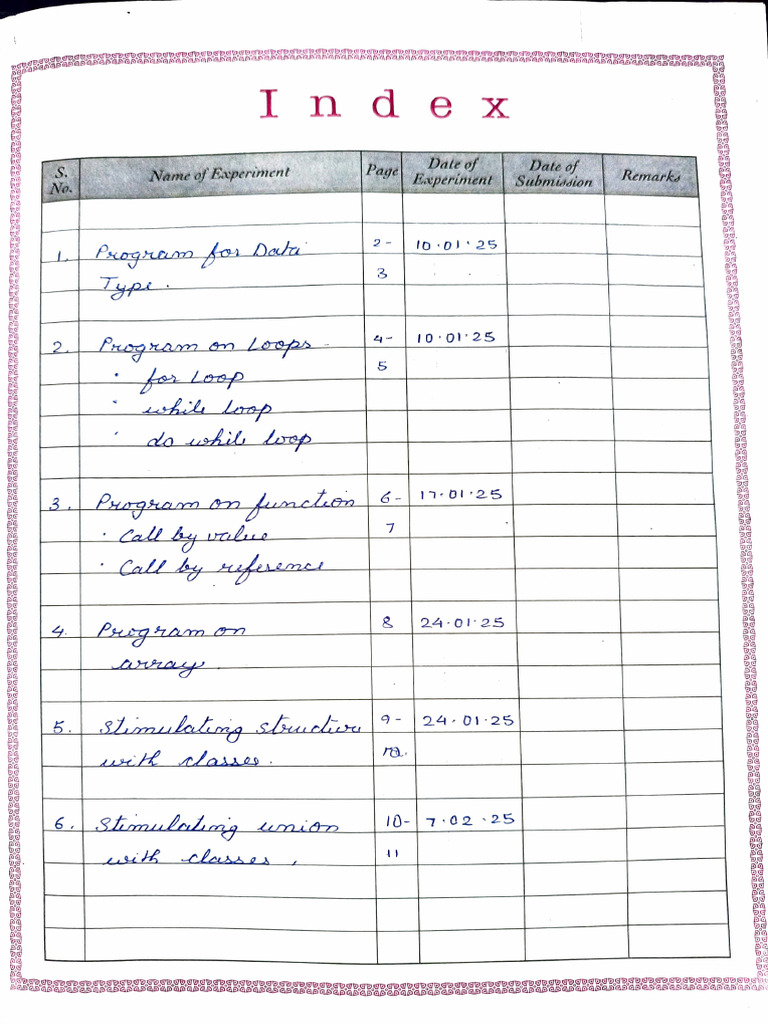 Index
S. No. Name of Experiment Page Date of Experiment Date of Submission Remarks
1. Program for Data 2- 10.01.25
Type. 3
2. Program on Loops - 4- 10.01.25
· for Loop 5
· while loop
· do while loop
3. Program on function 6- 17.01.25
· Call by value 7
· Call by reference
4. Program on 8 24.01.25
array.
5. Stimulating structure 9- 24.01.25
with classes.
6. Stimulating union 10- 7.02.25
with classes, 11